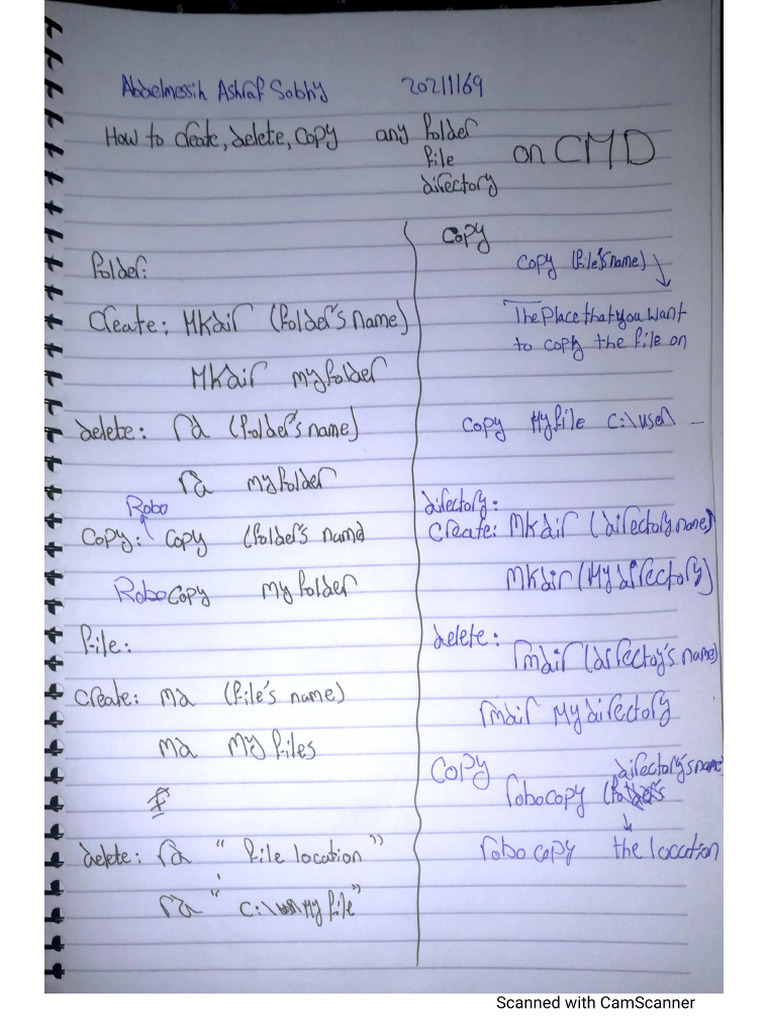 Abdelmessih Ashraf Sobhy 20211169
How to Create, delete, Copy any folder
file
directory
on CMD
folder:
Create: Mkdir (folder's name)
Mkdir myfolder
delete: rd (folder's name)
rd myfolder
Robo
Copy: Copy (folder's name)
RoboCopy myfolder
file:
Create: md (file's name)
md My files
delete: rd " file location "
rd " C:\ My file"
Copy
Copy (file's name)
The Place that you want
to copy the file on
Copy Myfile C:\user
directory:
Create: Mkdir (directory name)
Mkdir (My directory)
delete:
rmdir (directoy's name)
rmdir My directory
Copy
directory's name
robocopy (
robo copy the location
Scanned with CamScanner